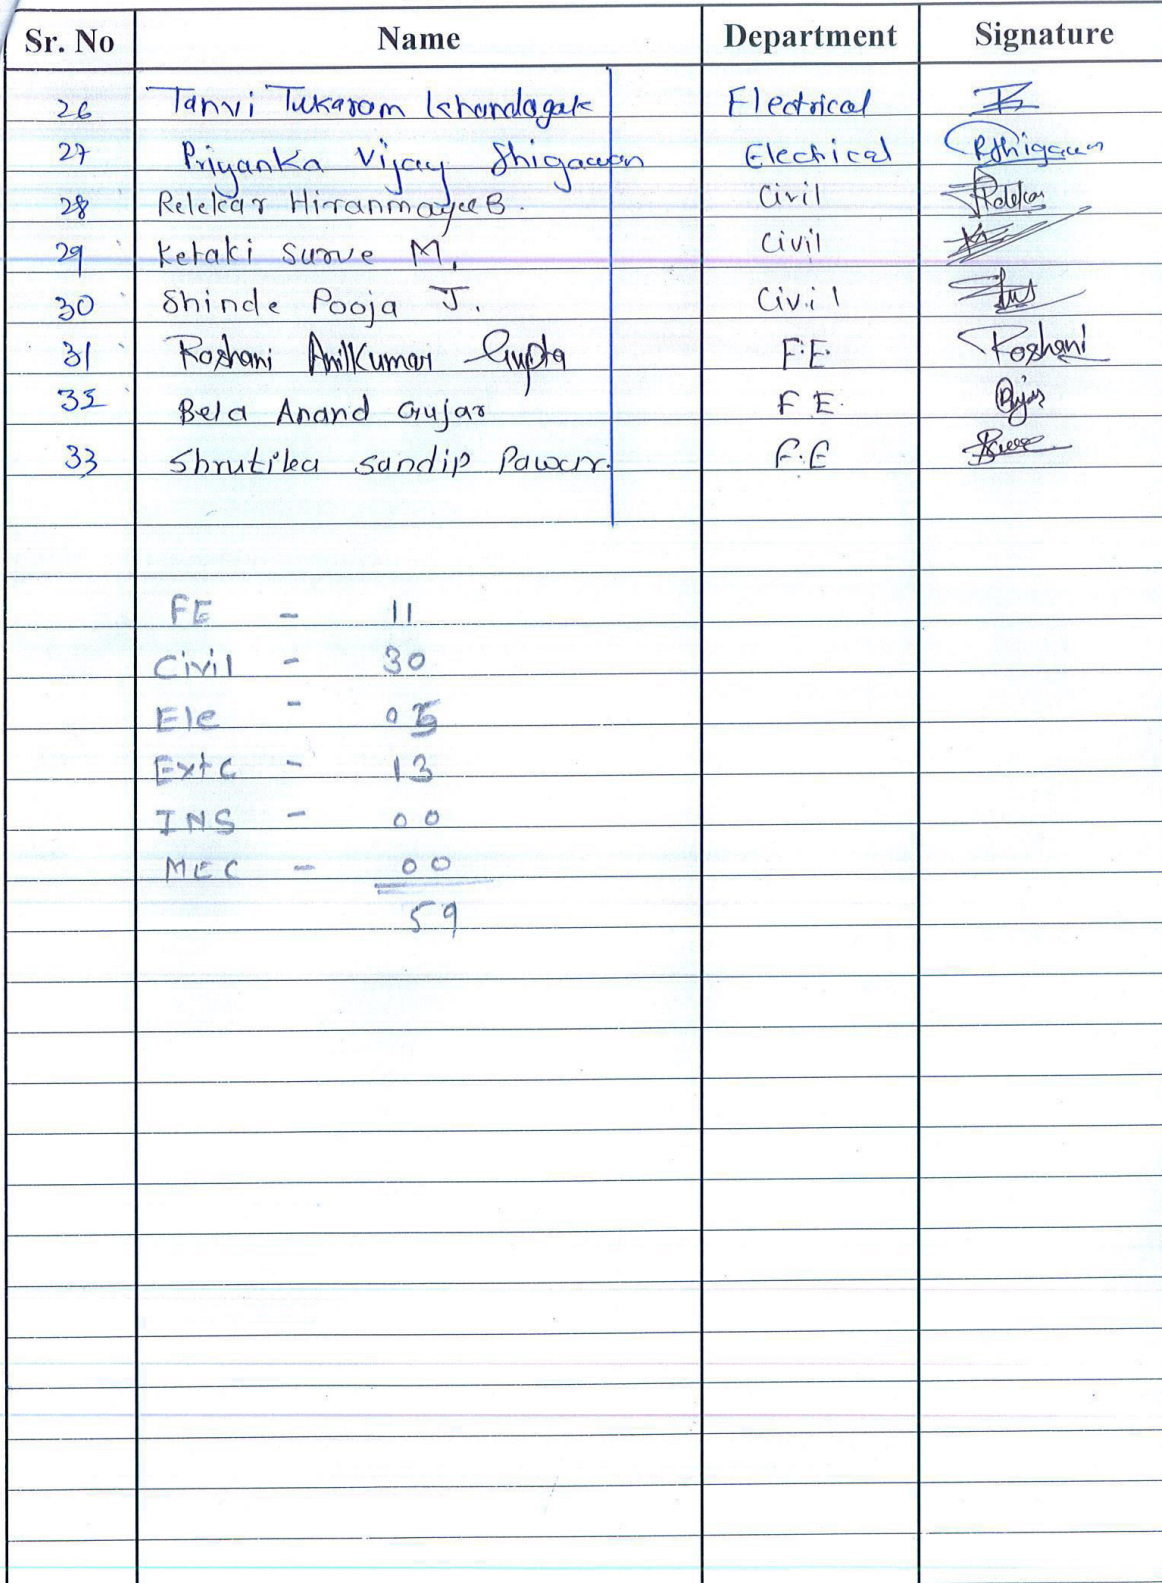 Sr. No Name Department Signature
26 Tanvi Tukaram Khandagale Electrical
27 Priyanka Vijay Shigawan Electrical PShigawan
28 Relekar Hiranmayee B. Civil Relekar
29 Ketaki Surve M. Civil
30 Shinde Pooja J. Civil
31 Roshani AnilKumar Gupta F.E. Roshani
32 Bela Anand Gujar F E.
33 Shrutika Sandip Pawar. F.E
FE - 11
Civil - 30
Ele - 05
Extc - 13
INS - 00
MEC - 00
59